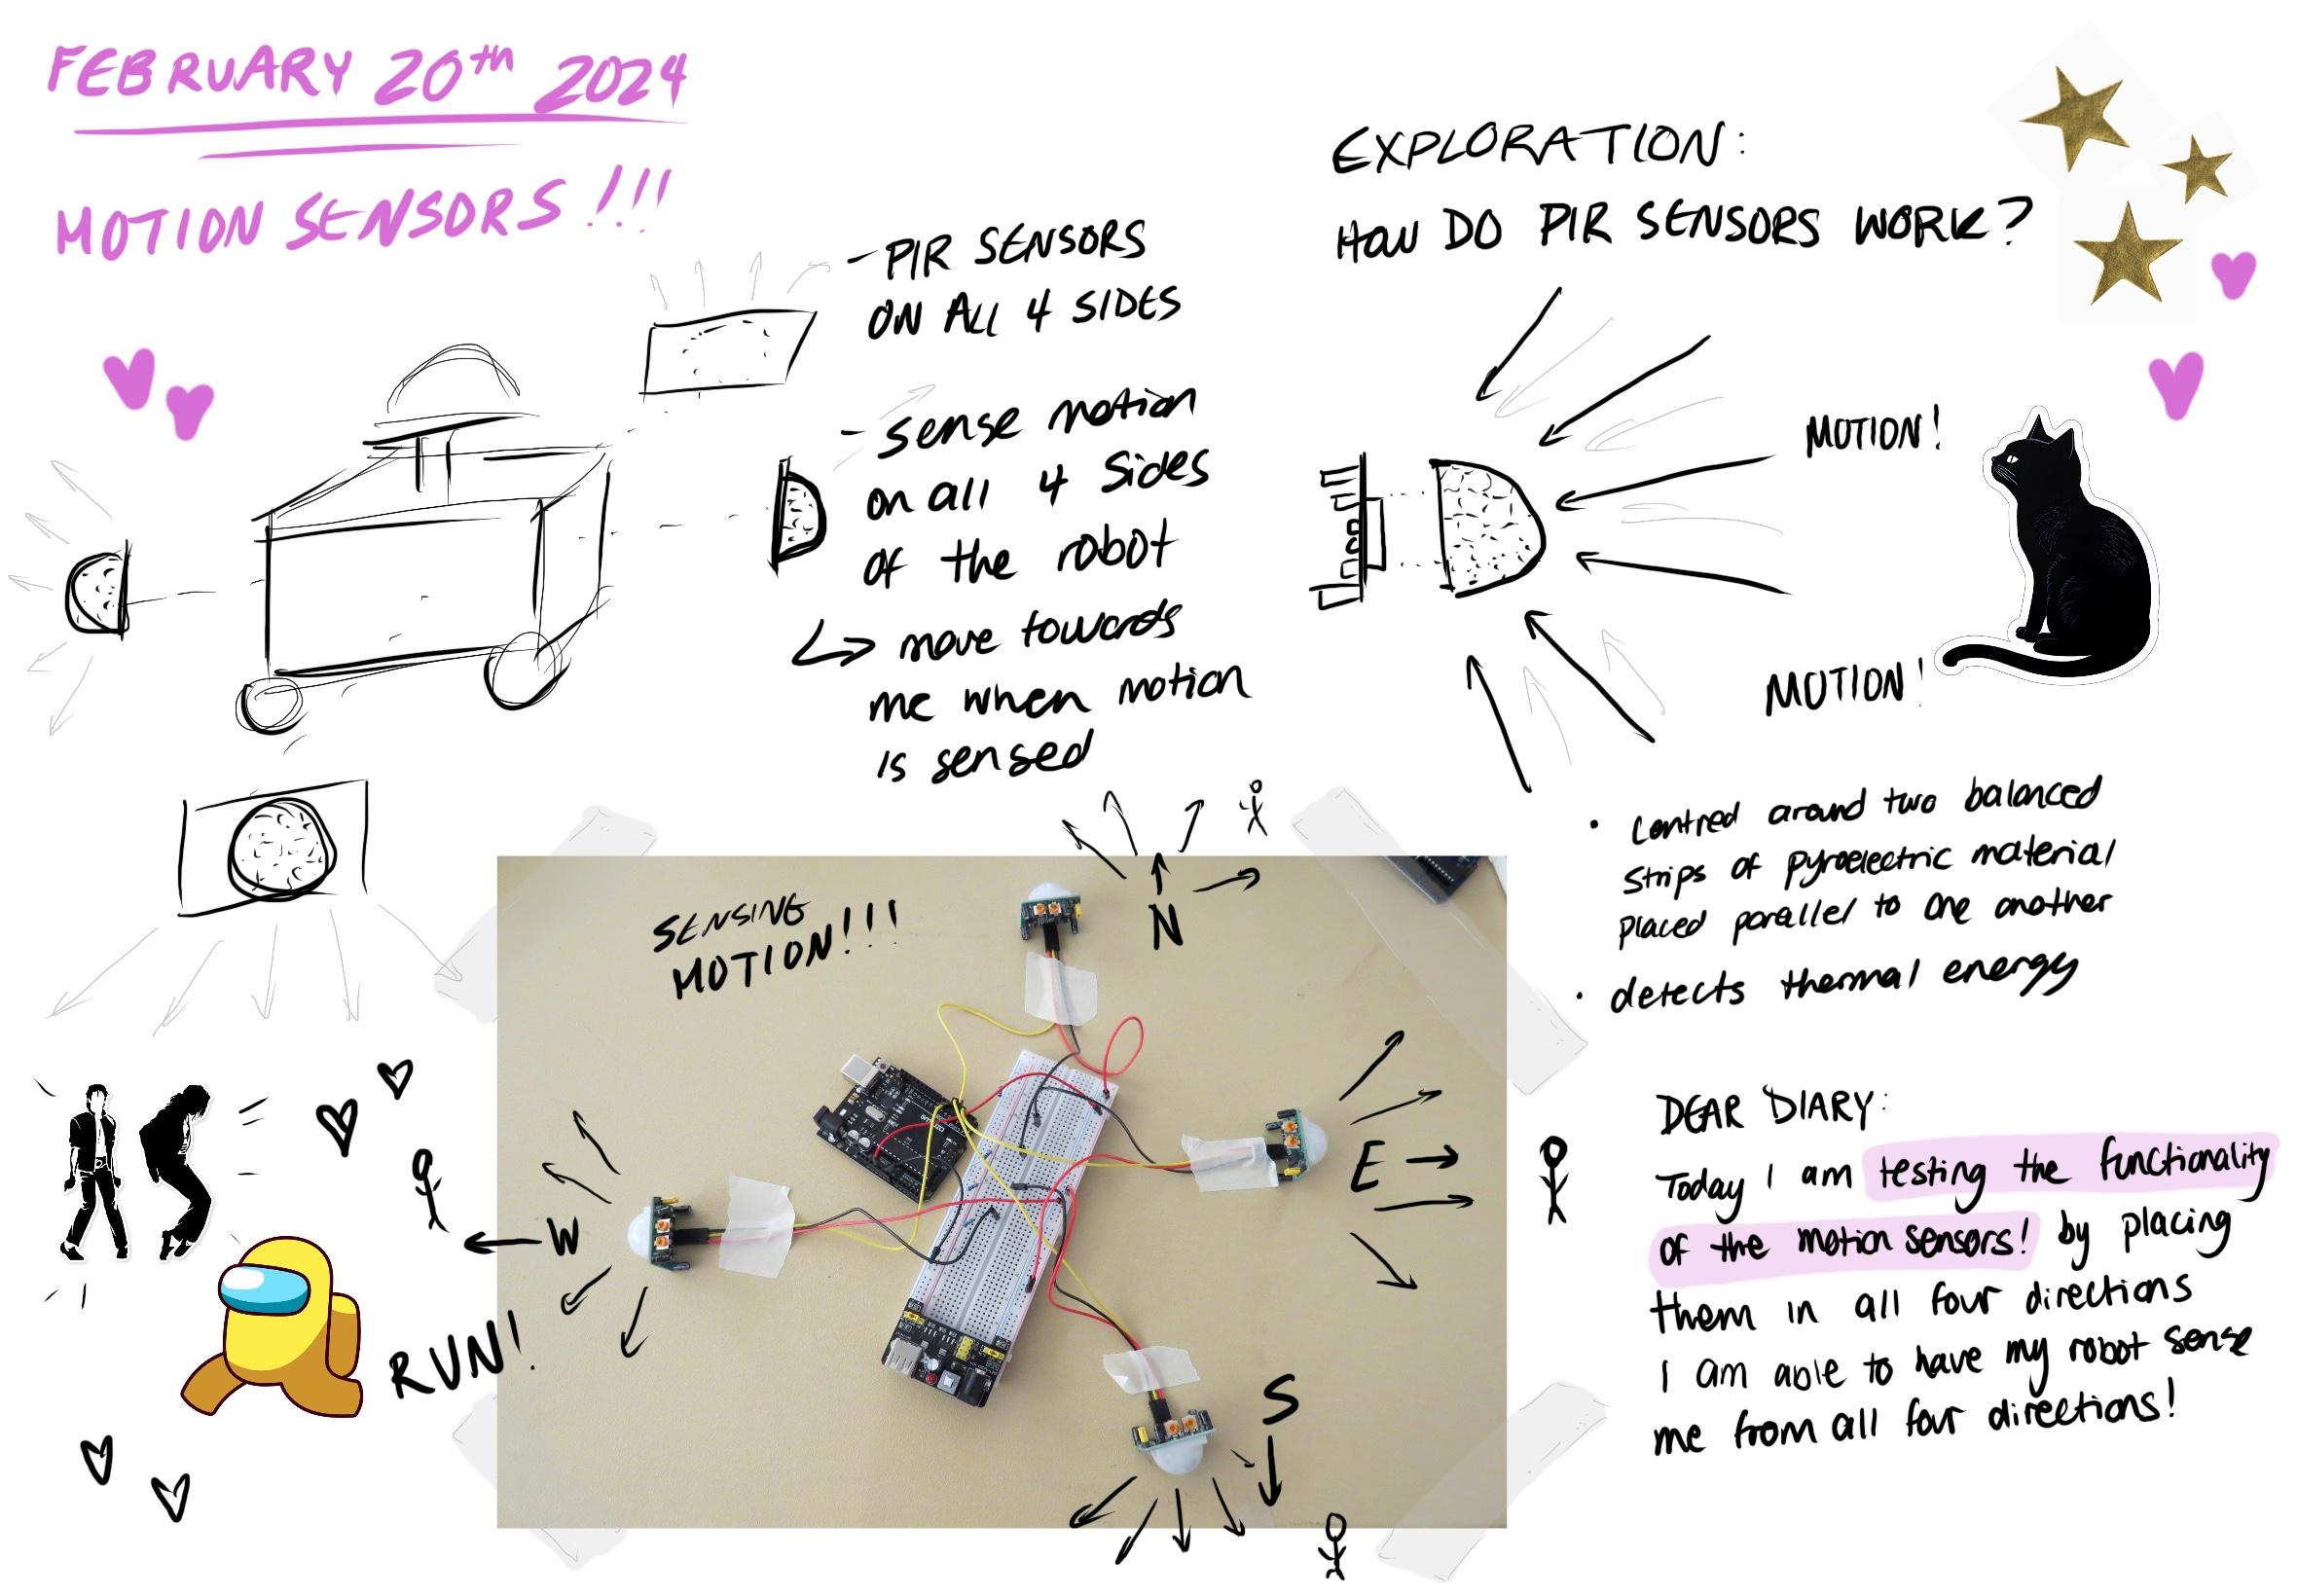 FEBRUARY 20th 2024
MOTION SENSORS!!!
- PIR SENSORS
ON ALL 4 SIDES
- sense motion
on all 4 sides
of the robot
↳ move towards
me when motion
is sensed
EXPLORATION:
HOW DO PIR SENSORS WORK?
MOTION!
MOTION!
• centred around two balanced
strips of pyroelectric material
placed parallel to one another
• detects thermal energy
SENSING
MOTION!!!
N
E
W
S
RUN!
DEAR DIARY:
Today I am testing the functionality
of the motion sensors! by placing
them in all four directions
I am able to have my robot sense
me from all four directions!